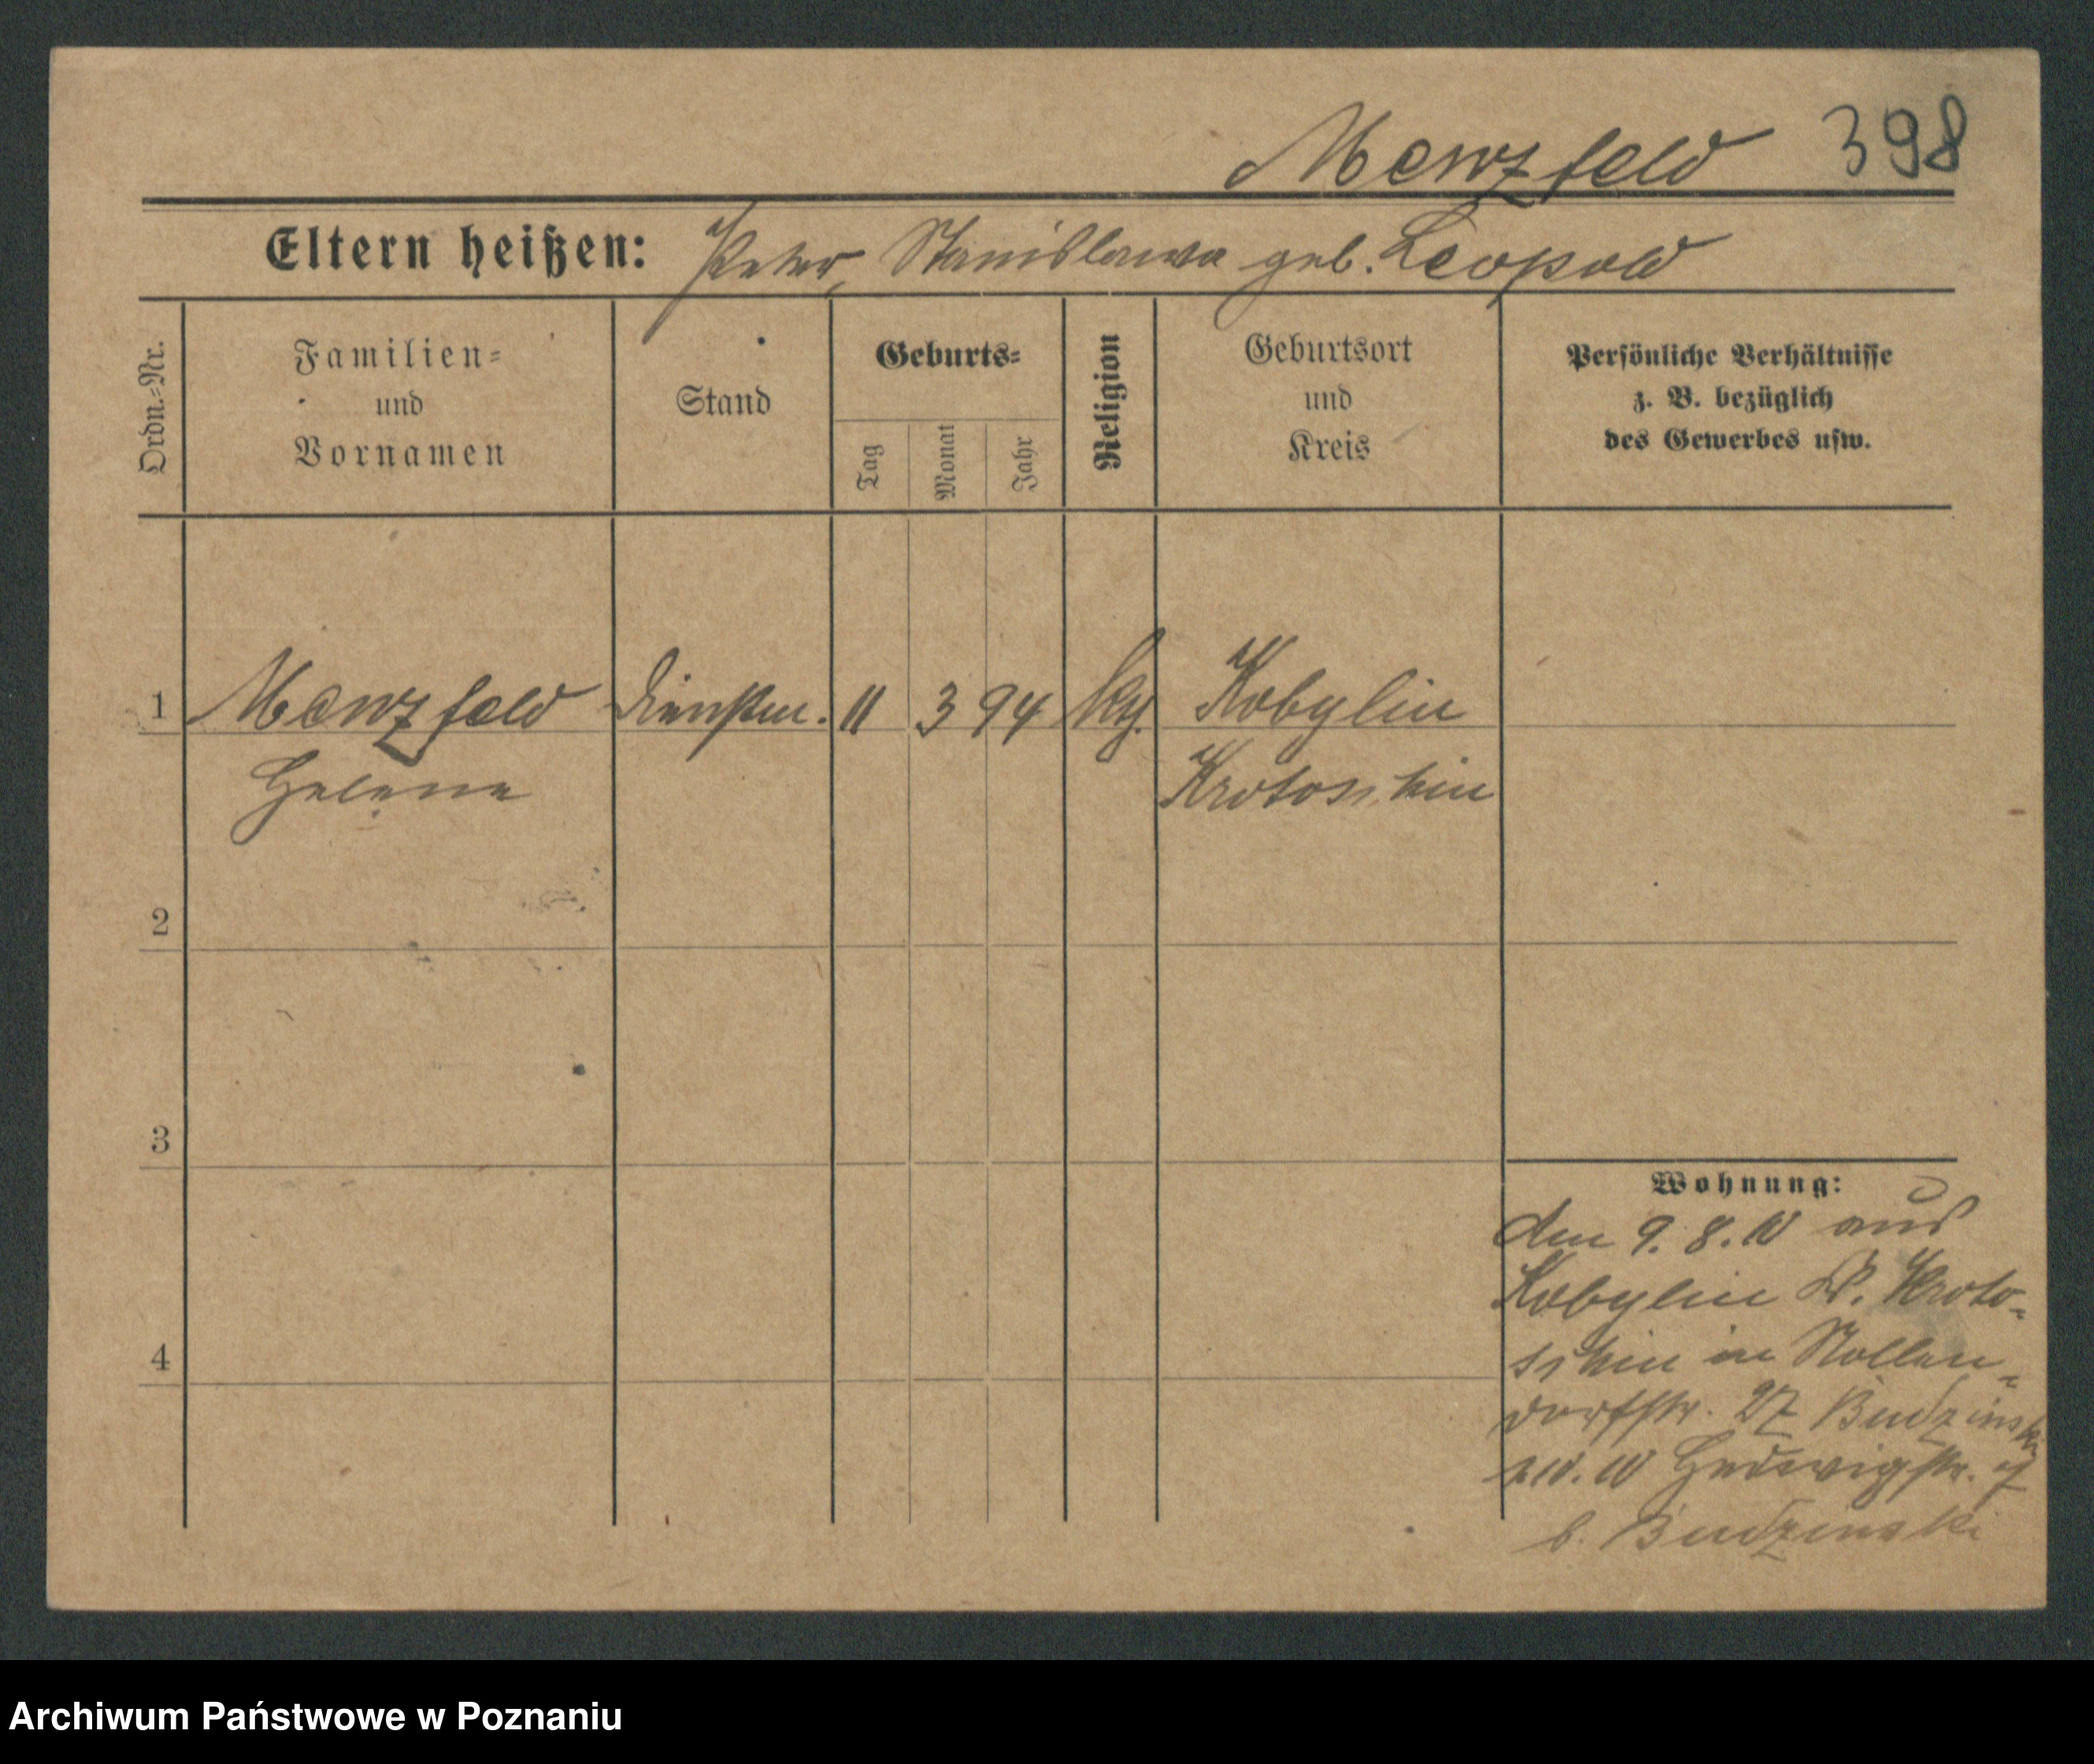 Menzfeld 398
Eltern heißen: Peter, Stanislawa geb. Leopold
Ordn.=Nr.
Familien=
und
Vornamen
Stand
Geburts=
Tag
Monat
Jahr
Religion
Geburtsort
und
Kreis
Persönliche Verhältnisse
z. B. bezüglich
des Gewerbes usw.
1 Menzfeld Dienstm. 11 3 94 kg. Kobylin
Helene Krotoschin
2
3
4
Wohnung:
den 9. 8. 10 aus
Kobylin K. Kroto=
schin in Nollen=
dorfstr. 27 Budzinski
10. 10 Hedwigstr.
b. Budzinski
Archiwum Państwowe w Poznaniu